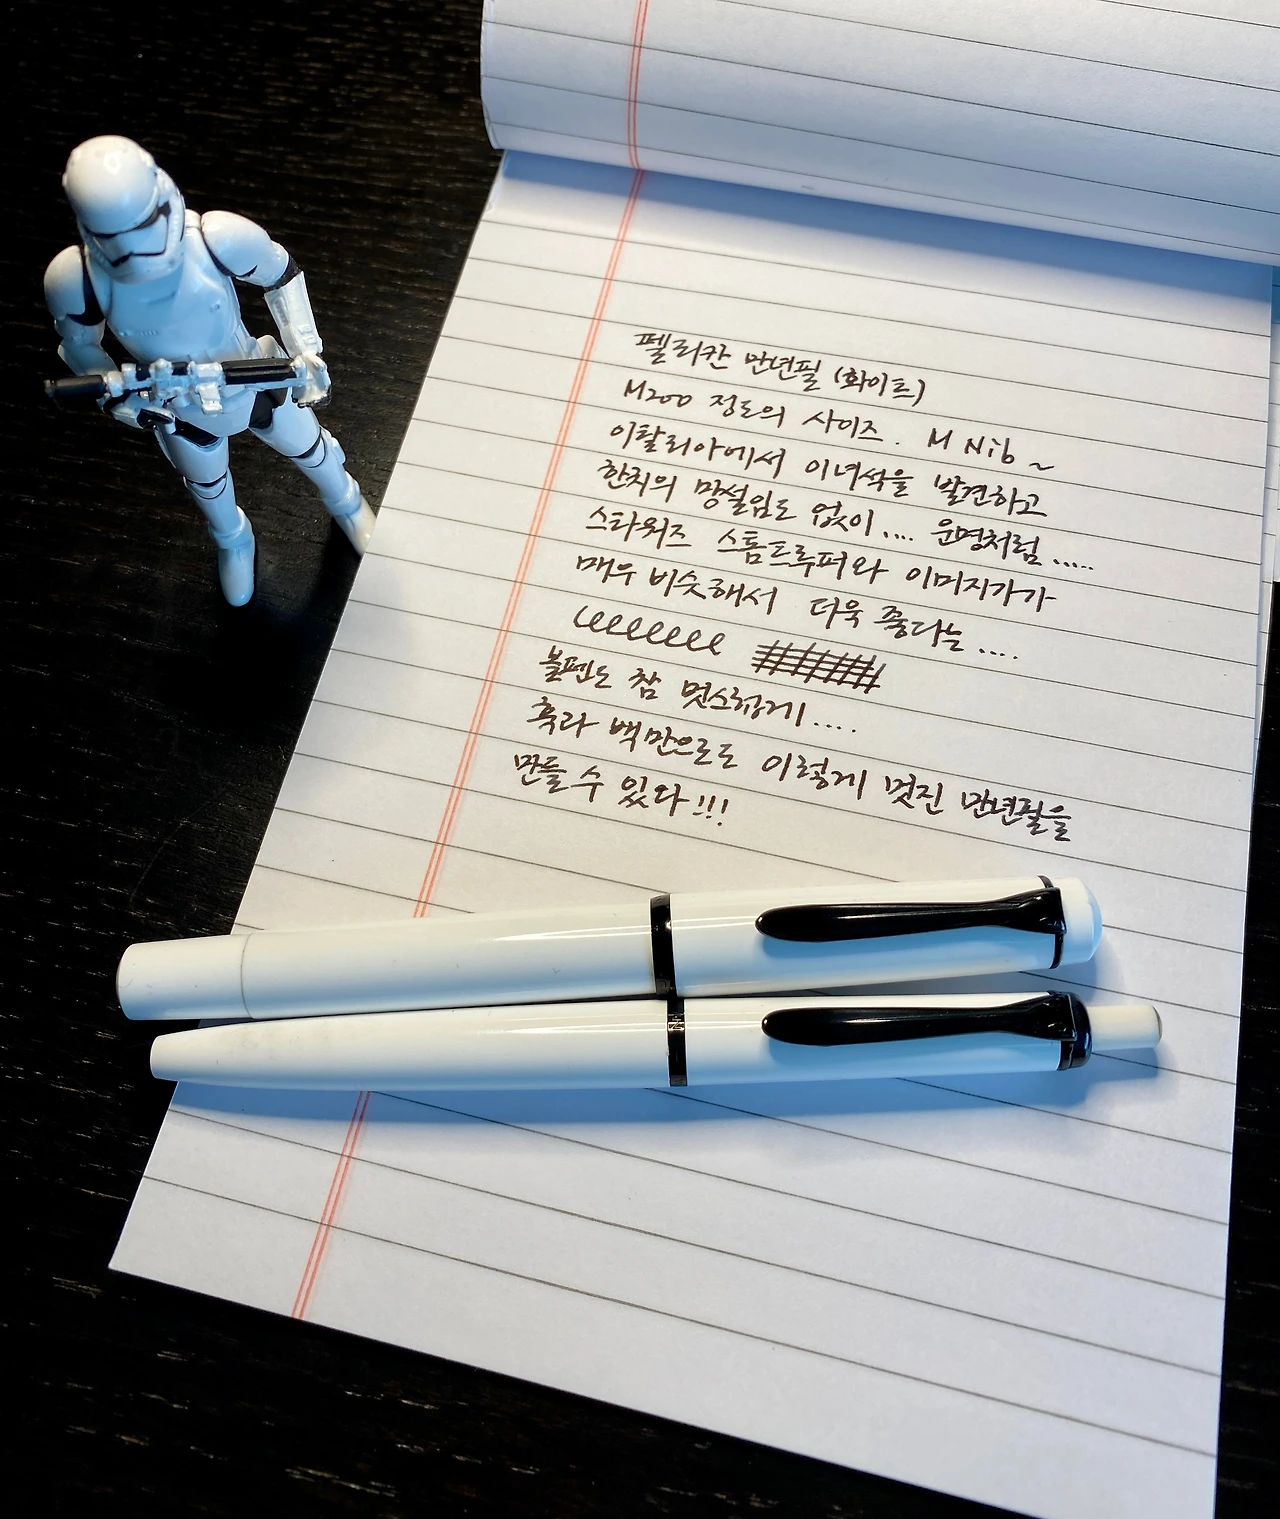 펠리칸 만년필 (화이트)
M200 정도의 사이즈. M Nib ~
이탈리아에서 이녀석을 발견하고
한치의 망설임도 없이.... 운명처럼.....
스타워즈 스톰트루퍼와 이미지가가
매우 비슷해서 더욱 좋다는....
볼펜도 참 멋스럽게....
흑과 백만으로도 이렇게 멋진 만년필을
만들 수 있다!!!